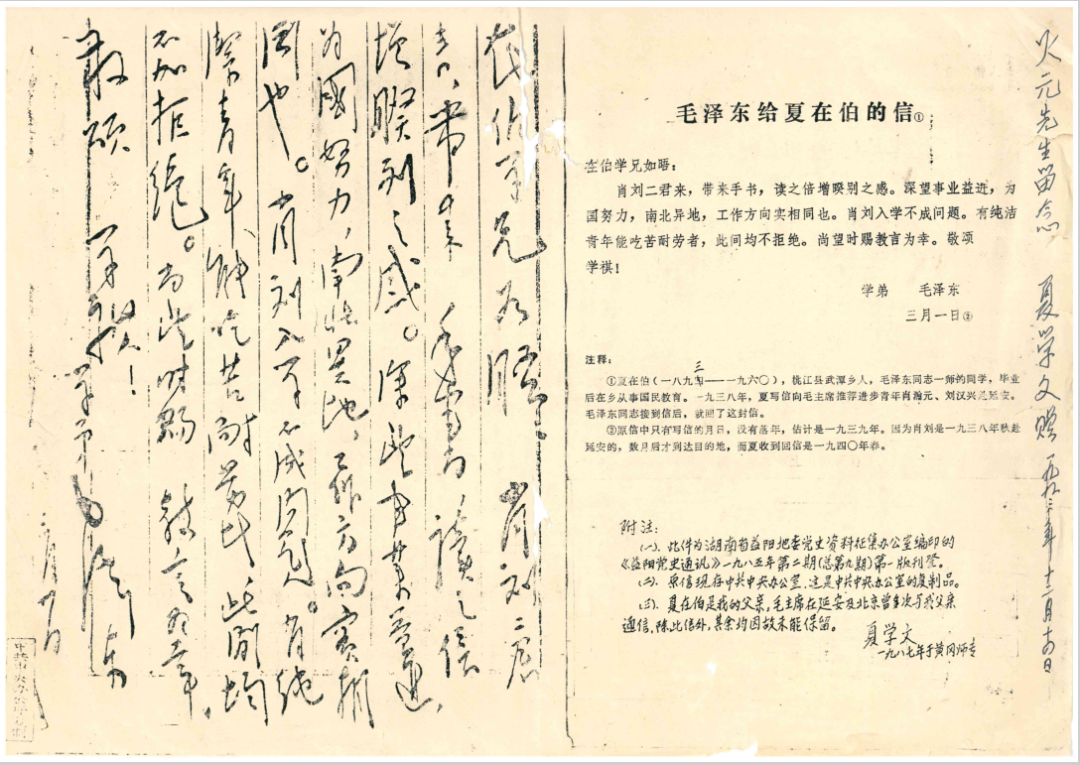 在伯学兄如晤：肖刘二君
来，带来手书，读之倍
增睽别之感。深望事业益进，
为國努力，南北异地，工作方向實相
同也。肖刘入学不成问题。有纯
潔青年，能吃苦耐劳者，此間均
不拒绝。尚望时赐教言为幸。
敬颂
学祺！
学弟 毛泽东
三月一日
毛泽东给夏在伯的信①
在伯学兄如晤：
肖刘二君来，带来手书，读之倍增暌别之感。深望事业益进，为
国努力，南北异地，工作方向实相同也。肖刘入学不成问题。有纯洁
青年能吃苦耐劳者，此间均不拒绝。尚望时赐教言为幸。敬项
学祺！
学弟 毛泽东
三月一日②
注释：
三
①夏在伯（一八九四——一九六〇），桃江县武潭乡人，毛泽东同志一师的同学，毕业
后在乡从事国民教育。一九三八年，夏写信向毛主席推荐进步青年肖瀚元、刘汉兴延安。
毛泽东同志接到信后，就回了这封信。
②原信中只有写信的月日，没有落年，估计是一九三九年。因为肖刘是一九三八年秋赴
延安的，数月后才到达目的地，而夏收到回信是一九四〇年春。
附注：
（一）、此件为湖南省益阳地委党史资料征集办公室编印的
《益阳党史通讯》一九八五年第二期（总第九期）第一版刊登。
（二）、原信现存中共中央办公室，这是中共中央办公室的复制品。
（三）、夏在伯是我的父亲，毛主席在延安及北京曾多次与我父亲
通信，除此信外，其余均因故未能保留。
夏学文
一九八七年于黄冈师专
火元先生留念 夏学文赠 一九九二年十二月日